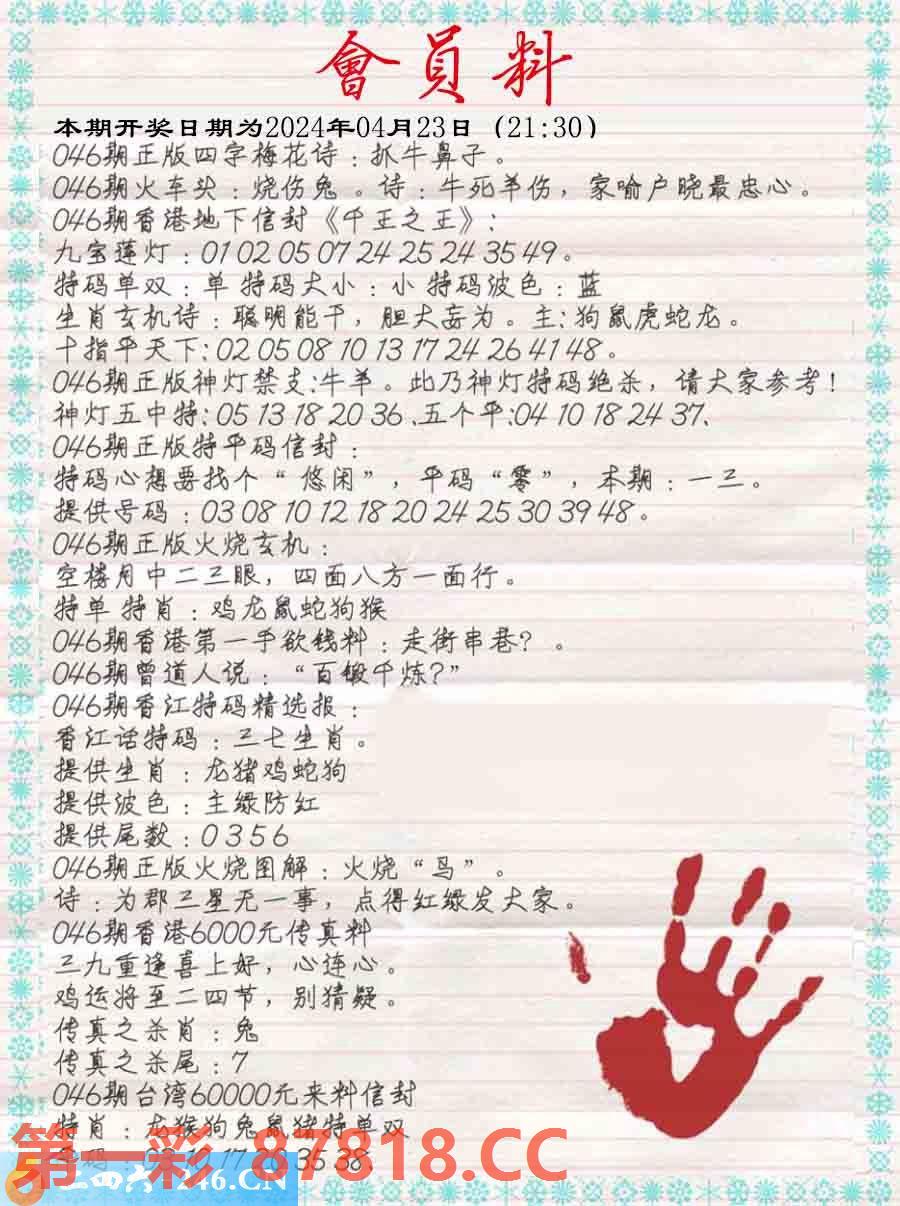 會員料
本期开奖日期为2024年04月23日（21:30）
046期正版四字梅花诗：抓牛鼻子。
046期火车头：烧伤兔。诗：牛死羊伤，家喻户晓最忠心。
046期香港地下信封《千王之王》：
九宝莲灯：01 02 05 07 24 25 24 35 49。
特码单双：单 特码大小：小 特码波色：蓝
生肖玄机诗：聪明能干，胆大妄为。主：狗鼠虎蛇龙。
十指平天下：02 05 08 10 13 17 24 26 41 48。
046期正版神灯禁支：牛羊。此乃神灯特码绝杀，请大家参考！
神灯五中特：05 13 18 20 36、五个平：04 10 18 24 37、
046期正版特平码信封：
特码心想要找个“悠闲”，平码“零”，本期：一三。
提供号码：03 08 10 12 18 20 24 25 30 39 48。
046期正版火烧玄机：
空楼月中二三眼，四面八方一面行。
特单 特肖：鸡龙鼠蛇狗猴
046期香港第一手欲钱料：走街串巷？。
046期曾道人说：“百锻千炼？”
046期香江特码精选报：
香江话特码：三七生肖。
提供生肖：龙猪鸡蛇狗
提供波色：主绿防红
提供尾数：0 3 5 6
046期正版火烧图解：火烧“鸟”。
诗：为郡三星无一事，点得红绿发大家。
046期香港6000元传真料
三九重逢喜上好，心连心。
鸡运将至二四节，别猜疑。
传真之杀肖：兔
传真之杀尾：7
046期台湾60000元来料信封
特肖：龙猴狗兔鼠猪特单双
10 17 26 35 38、
第一彩 87818.CC
二四六 1246.CN